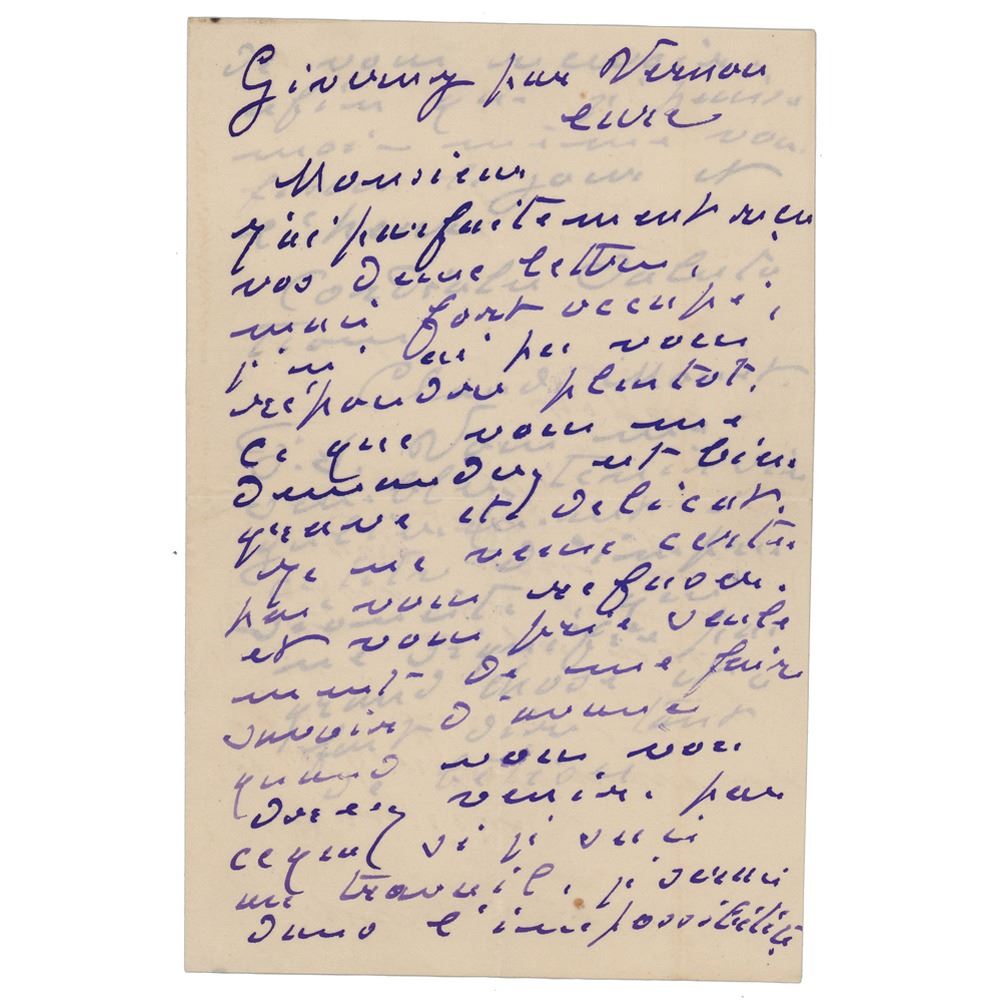 Giverny par Vernon
eure
Monsieur
J'ai parfaitement reçu
vos deux lettres,
mais fort occupé,
je n'ai pu vous
répondre plutot.
Ce que vous me
demandez est bien
grave et délicat.
Je ne veux certes
pas vous refuser.
et vous prie seule
ment de me faire
savoir d'avance
quand vous vou
drez venir. par
ceque si je suis
au travail, je serais
dans l'impossibilité